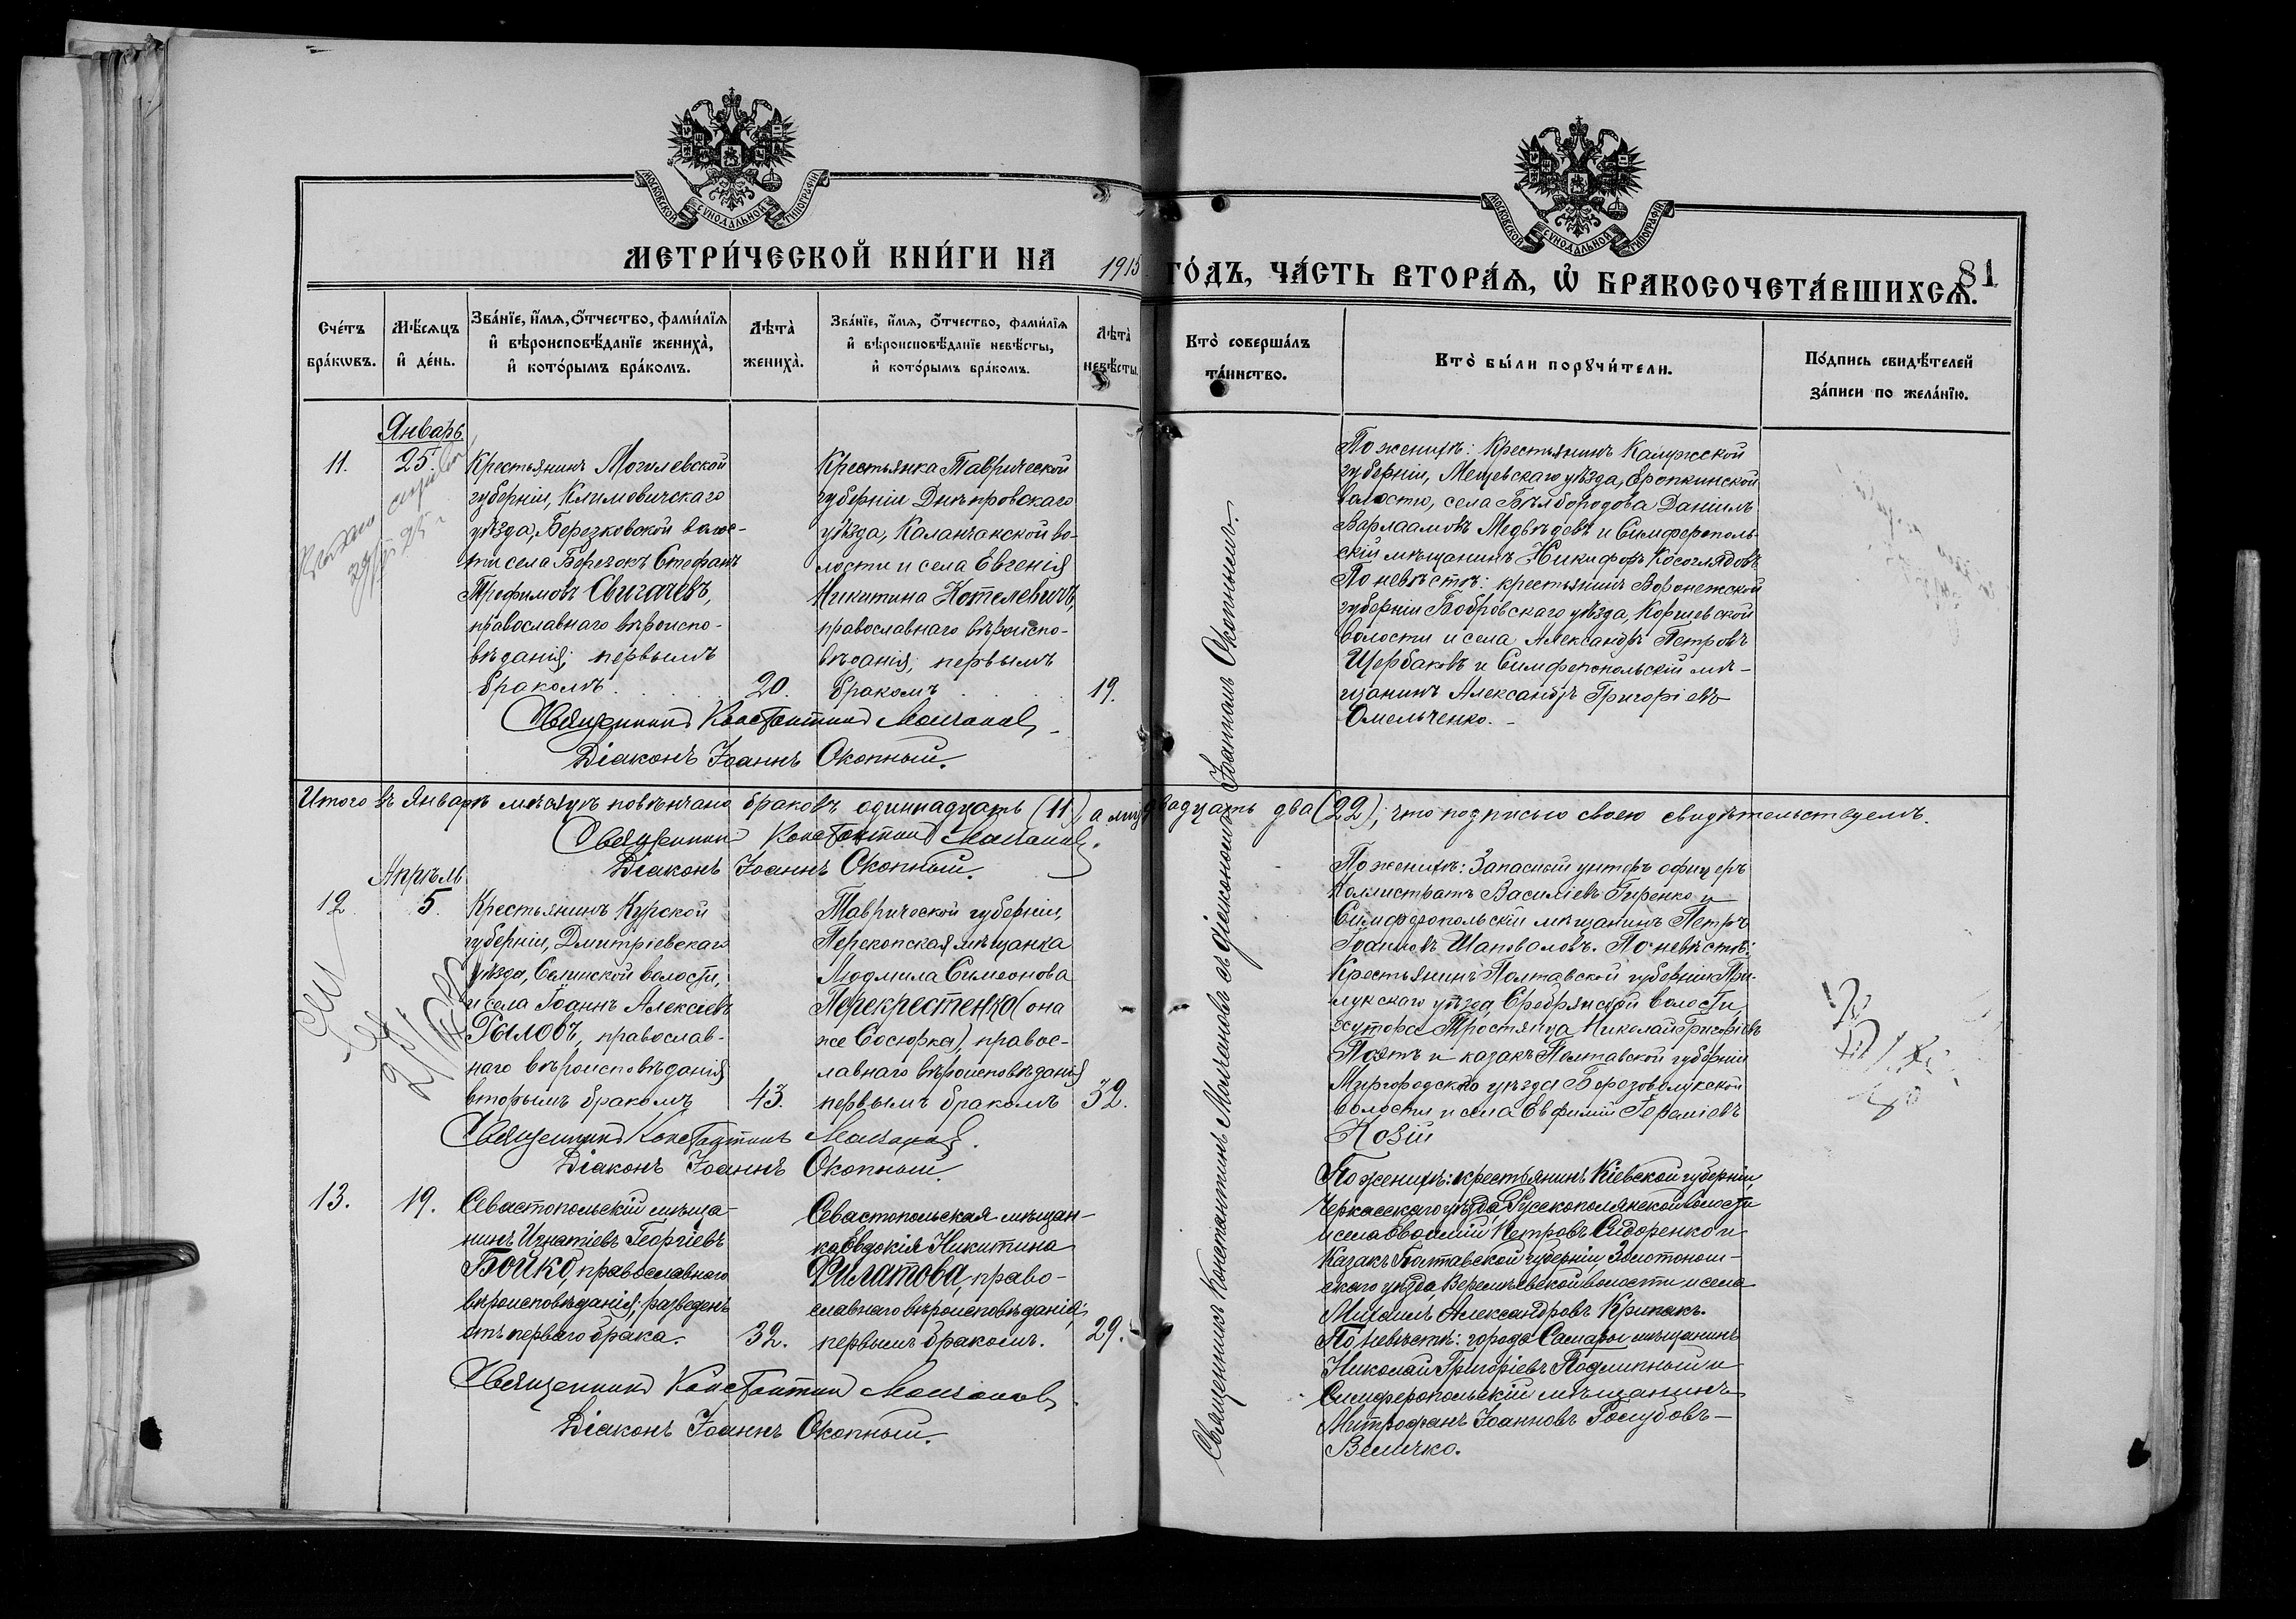 МОСКОВСКОЙ СѴНОДАЛЬНОЙ ТИПОГРАФІИ
МОСКОВСКОЙ СѴНОДАЛЬНОЙ ТИПОГРАФІИ
МЕТРИ́ЧЕСКОЙ КНИ́ГИ НА 1915 ГО́ДЪ, ЧА́СТЬ ВТОРА́Ѧ, Ѡ҆ БРАКОСОЧЕТА́ВШИХСѦ.
81
Сче́тъ
бра́кѡвъ.
Мѣ́сѧцъ
и҆ де́нь.
Зва́нїе, и҆́мѧ, ѻ҆́тчество, фами́лїѧ
и҆ вѣроисповѣ́данїе жениха̀,
и҆ кото́рымъ бра́комъ.
Лѣта̀
жениха̀.
Зва́нїе, и҆́мѧ, ѻ҆́тчество, фами́лїѧ
и҆ вѣроисповѣ́данїе невѣ́сты,
и҆ кото́рымъ бра́комъ.
Лѣта̀
невѣ́сты.
Кто̀ соверша́лъ
та́инство.
Кто̀ бы́ли порꙋчи́тели.
По́дпись свидѣ́телей
за́писи по жела́нїю.
Январь
11.
25.
Крестьянинъ Могилевской
губерніи, Климовичскаго
уѣзда, Березковской волос-
ти села Березокъ Стефанъ
Трофимовъ Свигачевъ,
православнаго вѣроиспо-
вѣданія; первымъ
бракомъ.
20.
Крестьянка Таврической
губерніи Днѣпровскаго
уѣзда, Каланчакской во-
лости и села Евгенія
Никитина Котелевичъ,
православнаго вѣроиспо-
вѣданія; первымъ
бракомъ
19.
Священникъ Константинъ Молчановъ
Діаконъ Іоаннъ Окопный.
По женихѣ: Крестьянинъ Калужской
губерніи, Мещевскаго уѣзда, Еропкинской
волости, села Бѣлбородова Даніилъ
Варлаамовъ Медвѣдевъ и Симферополь-
скій мѣщанинъ Никифоръ Косоглядовъ
По невѣстѣ: крестьянинъ Воронежской
губерніи Бобровскаго уѣзда, Коршевской
волости и села Александръ Петровъ
Щербаковъ и Симферопольскій мѣ-
щанинъ Александръ Григоріевъ
Омельченко.
Итого въ Январѣ мѣсяцѣ повѣнчано браковъ одиннадцать (11), а лицъ двадцать два (22), что подписью своею свидѣтельствуемъ.
Священникъ Константинъ Молчановъ.
Діаконъ Іоаннъ Окопный.
Апрѣль
12.
5.
Крестьянинъ Курской
губерніи, Дмитріевскаго
уѣзда, Селинской волости,
и села Іоаннъ Алексіевъ
Рыловъ, православ-
наго вѣроисповѣданія
вторымъ бракомъ
43.
Таврической губерніи,
Перекопская мѣщанка
Людмила Симеонова
Перекрестенко (она
же Сосюрка), правос-
лавнаго вѣроисповѣданія
первымъ бракомъ
32.
Священникъ Константинъ Молчановъ.
Діаконъ Іоаннъ Окопный.
По женихѣ: Запасный унтеръ офицеръ
Каллистратъ Василіевъ Гиренко и
Симферопольскій мѣщанинъ Петръ
Іоанновъ Шаповаловъ. По невѣстѣ:
Крестьянинъ Полтавской губерніи При-
лукскаго уѣзда, Сребрянской волости,
хутора Тростянца Николай Григоріевъ
Поятъ и казакъ Полтавской губерніи
Миргородскаго уѣзда Березоволукской
волости и села Евфимій
Козій
13.
19.
Севастопольскій мѣща-
нинъ Игнатіевъ Георгіевъ
Бойко, православнаго
вѣроисповѣданія; разведенъ
отъ перваго брака.
32.
Севастопольская мѣщан-
ка Евдокія Никитина
Филатова, право-
славнаго вѣроисповѣданія;
первымъ бракомъ.
29.
Священникъ Константинъ Молчановъ
Діаконъ Іоаннъ Окопный.
По женихѣ: крестьянинъ Кіевской губерніи,
Черкасскаго уѣзда, Русскополянской волости
и села Василій Петровъ Сидоренко и
Казакъ Полтавской губерніи, Золотонош-
скаго уѣзда, Веремѣевской волости и села
Михаилъ Александровъ Крипакъ.
По невѣстѣ: города Самары мѣщанинъ
Николай Григоріевъ Подлипный и
Симферопольскій мѣщанинъ
Митрофанъ Іоанновъ Голубовъ-
Величко.
Священникъ Константинъ Молчановъ съ діакономъ Іоанномъ Окопнымъ.